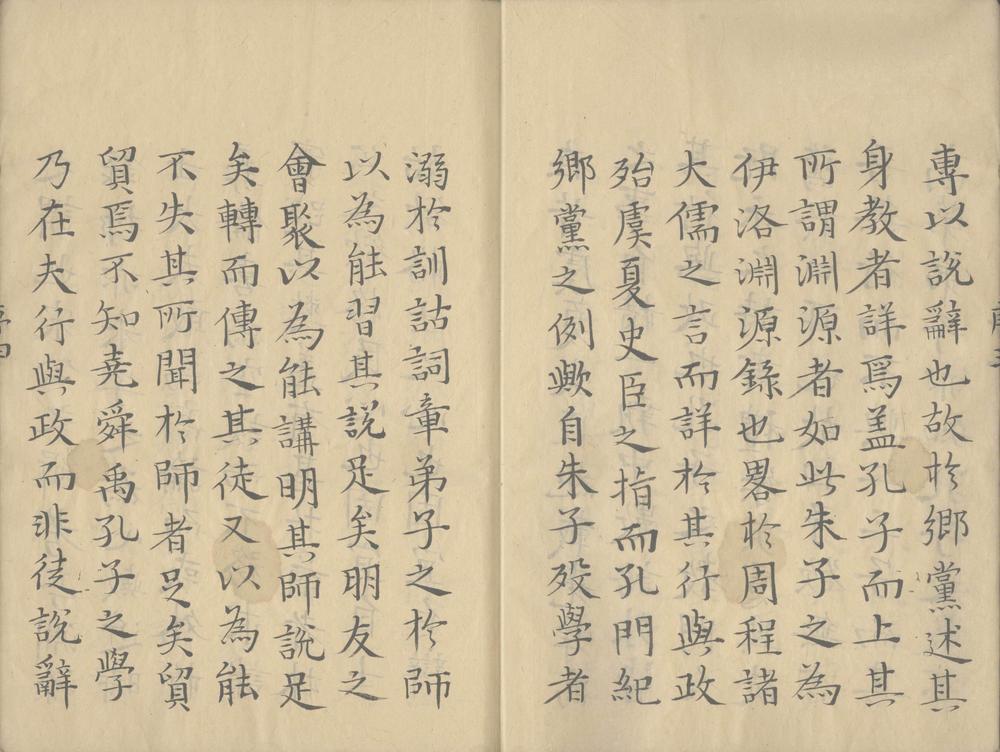 專以說辭也故於鄉黨述其
身教者詳焉盖孔子而上其
所謂淵源者如此朱子之為
伊洛淵源錄也畧於周程諸
大儒之言而詳於其行與政
殆虞夏史臣之指而孔門紀
鄉黨之例歟自朱子歿學者
溺於訓詁詞章弟子之於師
以為能習其說足矣明友之
會聚以為能講明其師說足
矣轉而傳之其徒又以為能
不失其所聞於師者足矣貿
貿焉不知堯舜禹孔子之學
乃在夫行與政而非徒說辭